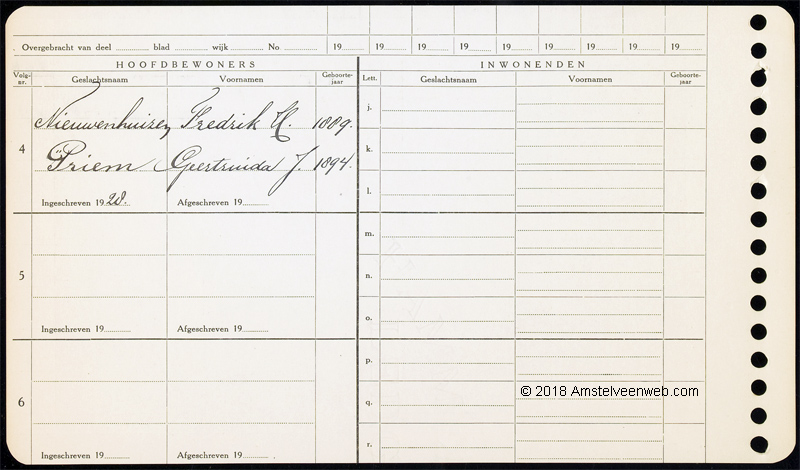 Overgebracht van deel ............ blad ............ wijk ............ No ............ 19...... 19...... 19...... 19...... 19...... 19...... 19...... 19......
HOOFDBEWONERS INWONENDEN
Volg-nr. Geslachtsnaam Voornamen Geboorte-jaar Lett. Geslachtsnaam Voornamen Geboorte-jaar
Nieuwenhuizen Fredrik H. 1889. j.
4 k.
Priem Geertruida J. 1894.
l.
Ingeschreven 1928. Afgeschreven 19............
m.
5 n.
o.
Ingeschreven 19............ Afgeschreven 19............
p.
© 2018 Amstelveenweb.com
6 q.
r.
Ingeschreven 19............ Afgeschreven 19............